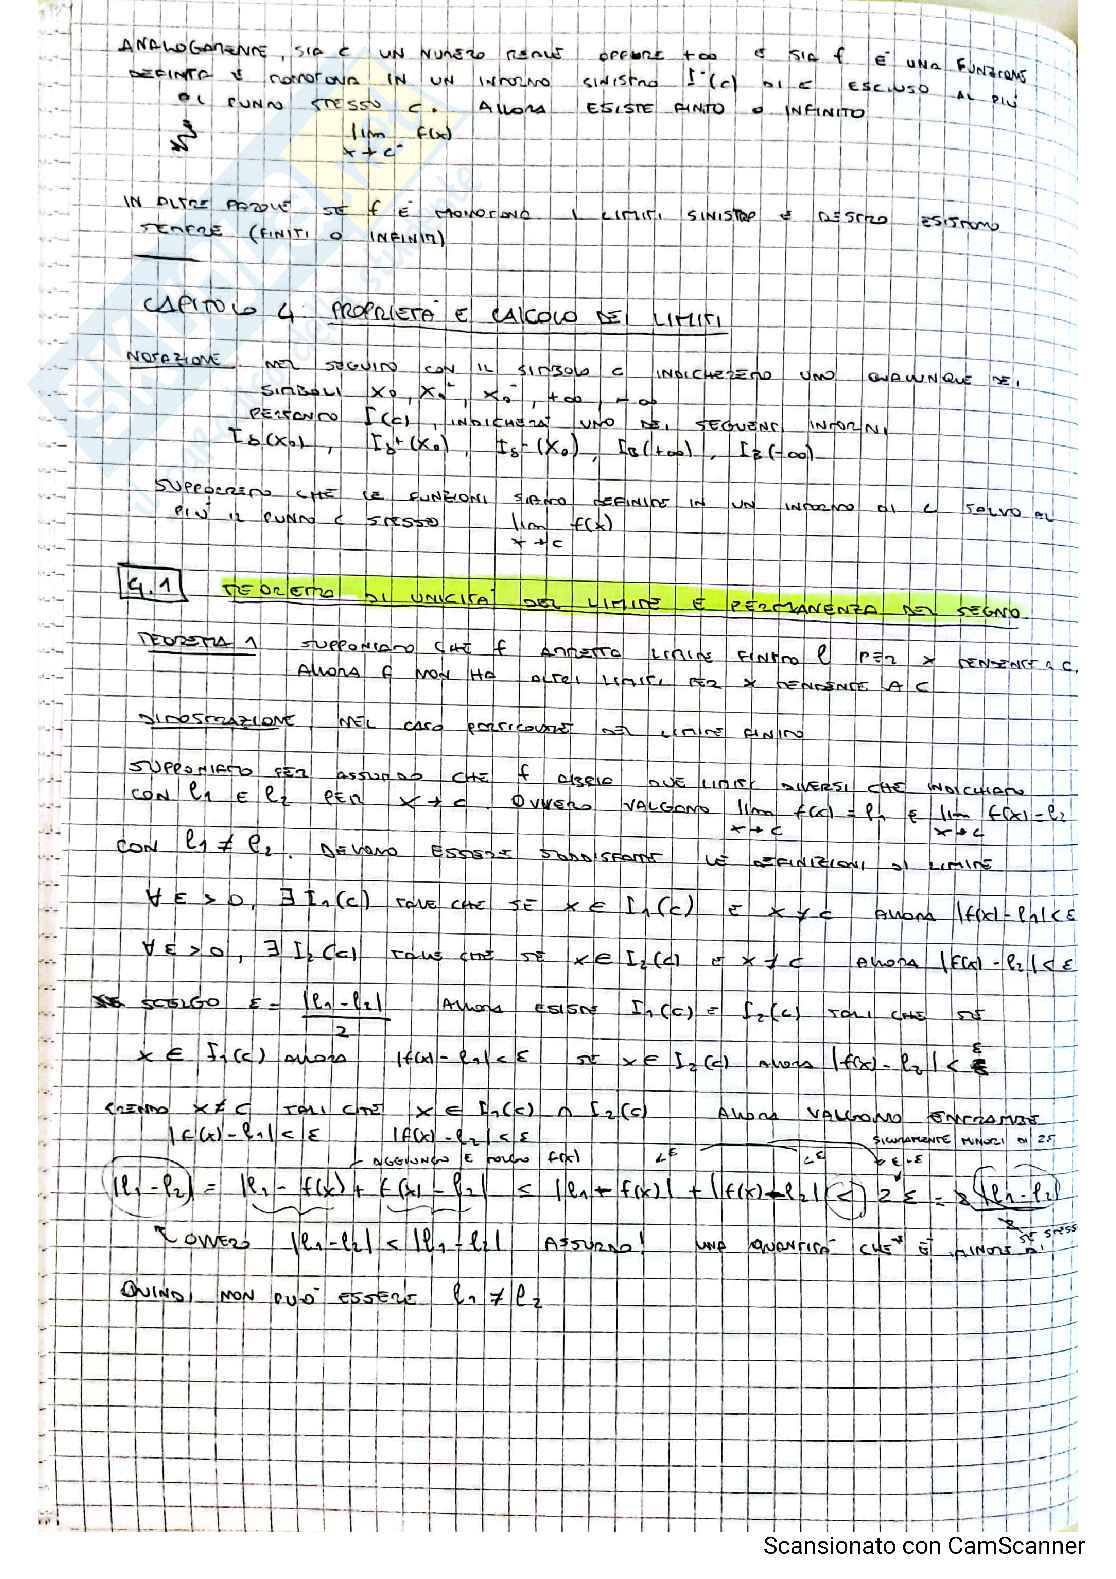 ANALOGAMENTE, SIA C UN NUMERO REALE OPPURE +∞ E SIA f È UNA FUNZIONE
DEFINITA E MONOTONA IN UN INTORNO SINISTRO I⁻(c) DI C ESCLUSO AL PIÙ
DI PUNTO STESSO C. ALLORA ESISTE FINITO O INFINITO
lim f(x)
x→c⁻
IN ALTRE PAROLE SE f È MONOTONA I LIMITI SINISTRO E DESTRO ESISTONO
SEMPRE (FINITI O INFINITI)
CAPITOLO 4 PROPRIETÀ E CALCOLO DEI LIMITI
NOTAZIONE NEL SEGUITO CON IL SIMBOLO C INDICHEREMO UNO QUALUNQUE DEI
SIMBOLI x₀, x₀⁺, x₀⁻, +∞, -∞
PERTANTO I(c), INDICHERÀ UNO DEI SEGUENTI INTORNI
Iδ(x₀), Iδ⁺(x₀), Iδ⁻(x₀), IB(+∞), IB(-∞)
SUPPORREMO CHE LE FUNZIONI SIANO DEFINITE IN UN INTORNO DI C SALVO AL
PIÙ IL PUNTO C STESSO lim f(x)
x→c
4.1 TEOREMA DI UNICITÀ DEL LIMITE E PERMANENZA DEL SEGNO
TEOREMA 1 SUPPONIAMO CHE f AMMETTA LIMITE FINITO ℓ PER x TENDENTE A C.
ALLORA f NON HA ALTRI LIMITI PER x TENDENTE A C
DIMOSTRAZIONE NEL CASO PARTICOLARE DEL LIMITE FINITO
SUPPONIAMO PER ASSURDO CHE f ABBIA DUE LIMITI DIVERSI CHE INDICHIAMO
CON ℓ₁ E ℓ₂ PER x→c. OVVERO VALGONO lim f(x)=ℓ₁ E lim f(x)=ℓ₂
x→c x→c
CON ℓ₁ ≠ ℓ₂. DEVONO ESSERE SODDISFATTE LE DEFINIZIONI DI LIMITE
∀ε>0, ∃ I₁(c) TALE CHE SE x∈I₁(c) E x≠c ALLORA |f(x)-ℓ₁|<ε
∀ε>0, ∃ I₂(c) TALE CHE SE x∈I₂(c) E x≠c ALLORA |f(x)-ℓ₂|<ε
SCELGO ε = |ℓ₁-ℓ₂|/2 ALLORA ESISTE I₁(c) E I₂(c) TALI CHE SE
x∈I₁(c) ALLORA |f(x)-ℓ₁|<ε SE x∈I₂(c) ALLORA |f(x)-ℓ₂|<ε
x≠c TALI CHE x∈I₁(c)∩I₂(c) ALLORA VALGONO ENTRAMBE
|f(x)-ℓ₁|<ε |f(x)-ℓ₂|<ε SICURAMENTE MINORI DI 2ε
AGGIUNGO E TOLGO f(x) <ε <ε ε+ε
|ℓ₁-ℓ₂| = |ℓ₁-f(x)+f(x)-ℓ₂| ≤ |ℓ₁-f(x)|+|f(x)-ℓ₂| < 2ε = 2 |ℓ₁-ℓ₂|/2
OVVERO |ℓ₁-ℓ₂|<|ℓ₁-ℓ₂| ASSURDO! UNA QUANTITÀ CHE È MINORE DI SE STESSA
QUINDI NON PUÒ ESSERE ℓ₁≠ℓ₂
Scansionato con CamScanner